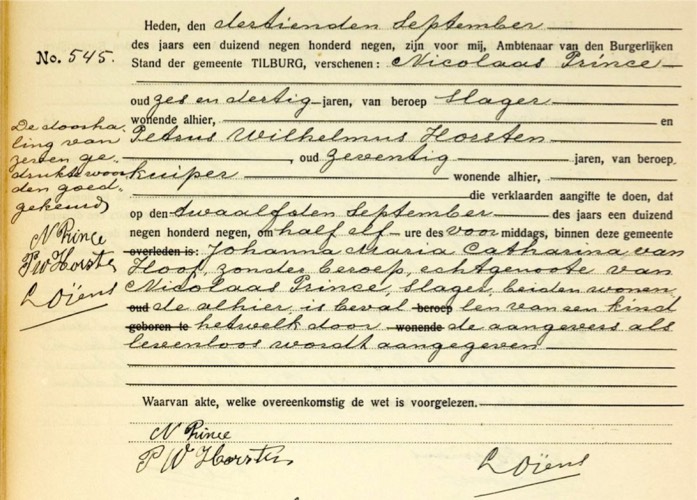 Heden, den dertienden September
No. 545.
des jaars een duizend negen honderd negen, zijn voor mij, Ambtenaar van den Burgerlijken
Stand der gemeente TILBURG, verschenen: Nicolaas Prince
oud zes en dertig jaren, van beroep slager
wonende alhier, en
Petrus Wilhelmus Horsten
, oud zeventig jaren, van beroep
kuiper wonende alhier,
die verklaarden aangifte te doen, dat
op den twaalfden September des jaars een duizend
negen honderd negen, om half elf ure des voormiddags, binnen deze gemeente
overleden is: Johanna Maria Catharina van
Hoof, zonder beroep, echtgenoote van
Nicolaas Prince, slager, beiden wonen,
oud de alhier, is beval beroep len van een kind
geboren te hetwelk door wonende de aangevers als
levenloos wordt aangegeven
De doorha,
ling van
zeven ge,
drukte woor
den goed,
gekeurd,
N Prince
P W Horsten
L Oïens
Waarvan akte, welke overeenkomstig de wet is voorgelezen.
N Prince
P W Horsten
L Oïens